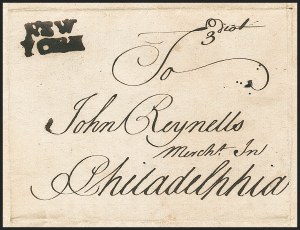 NEW
YORK
To
John Reynells
Mercht. In
Philadelphia